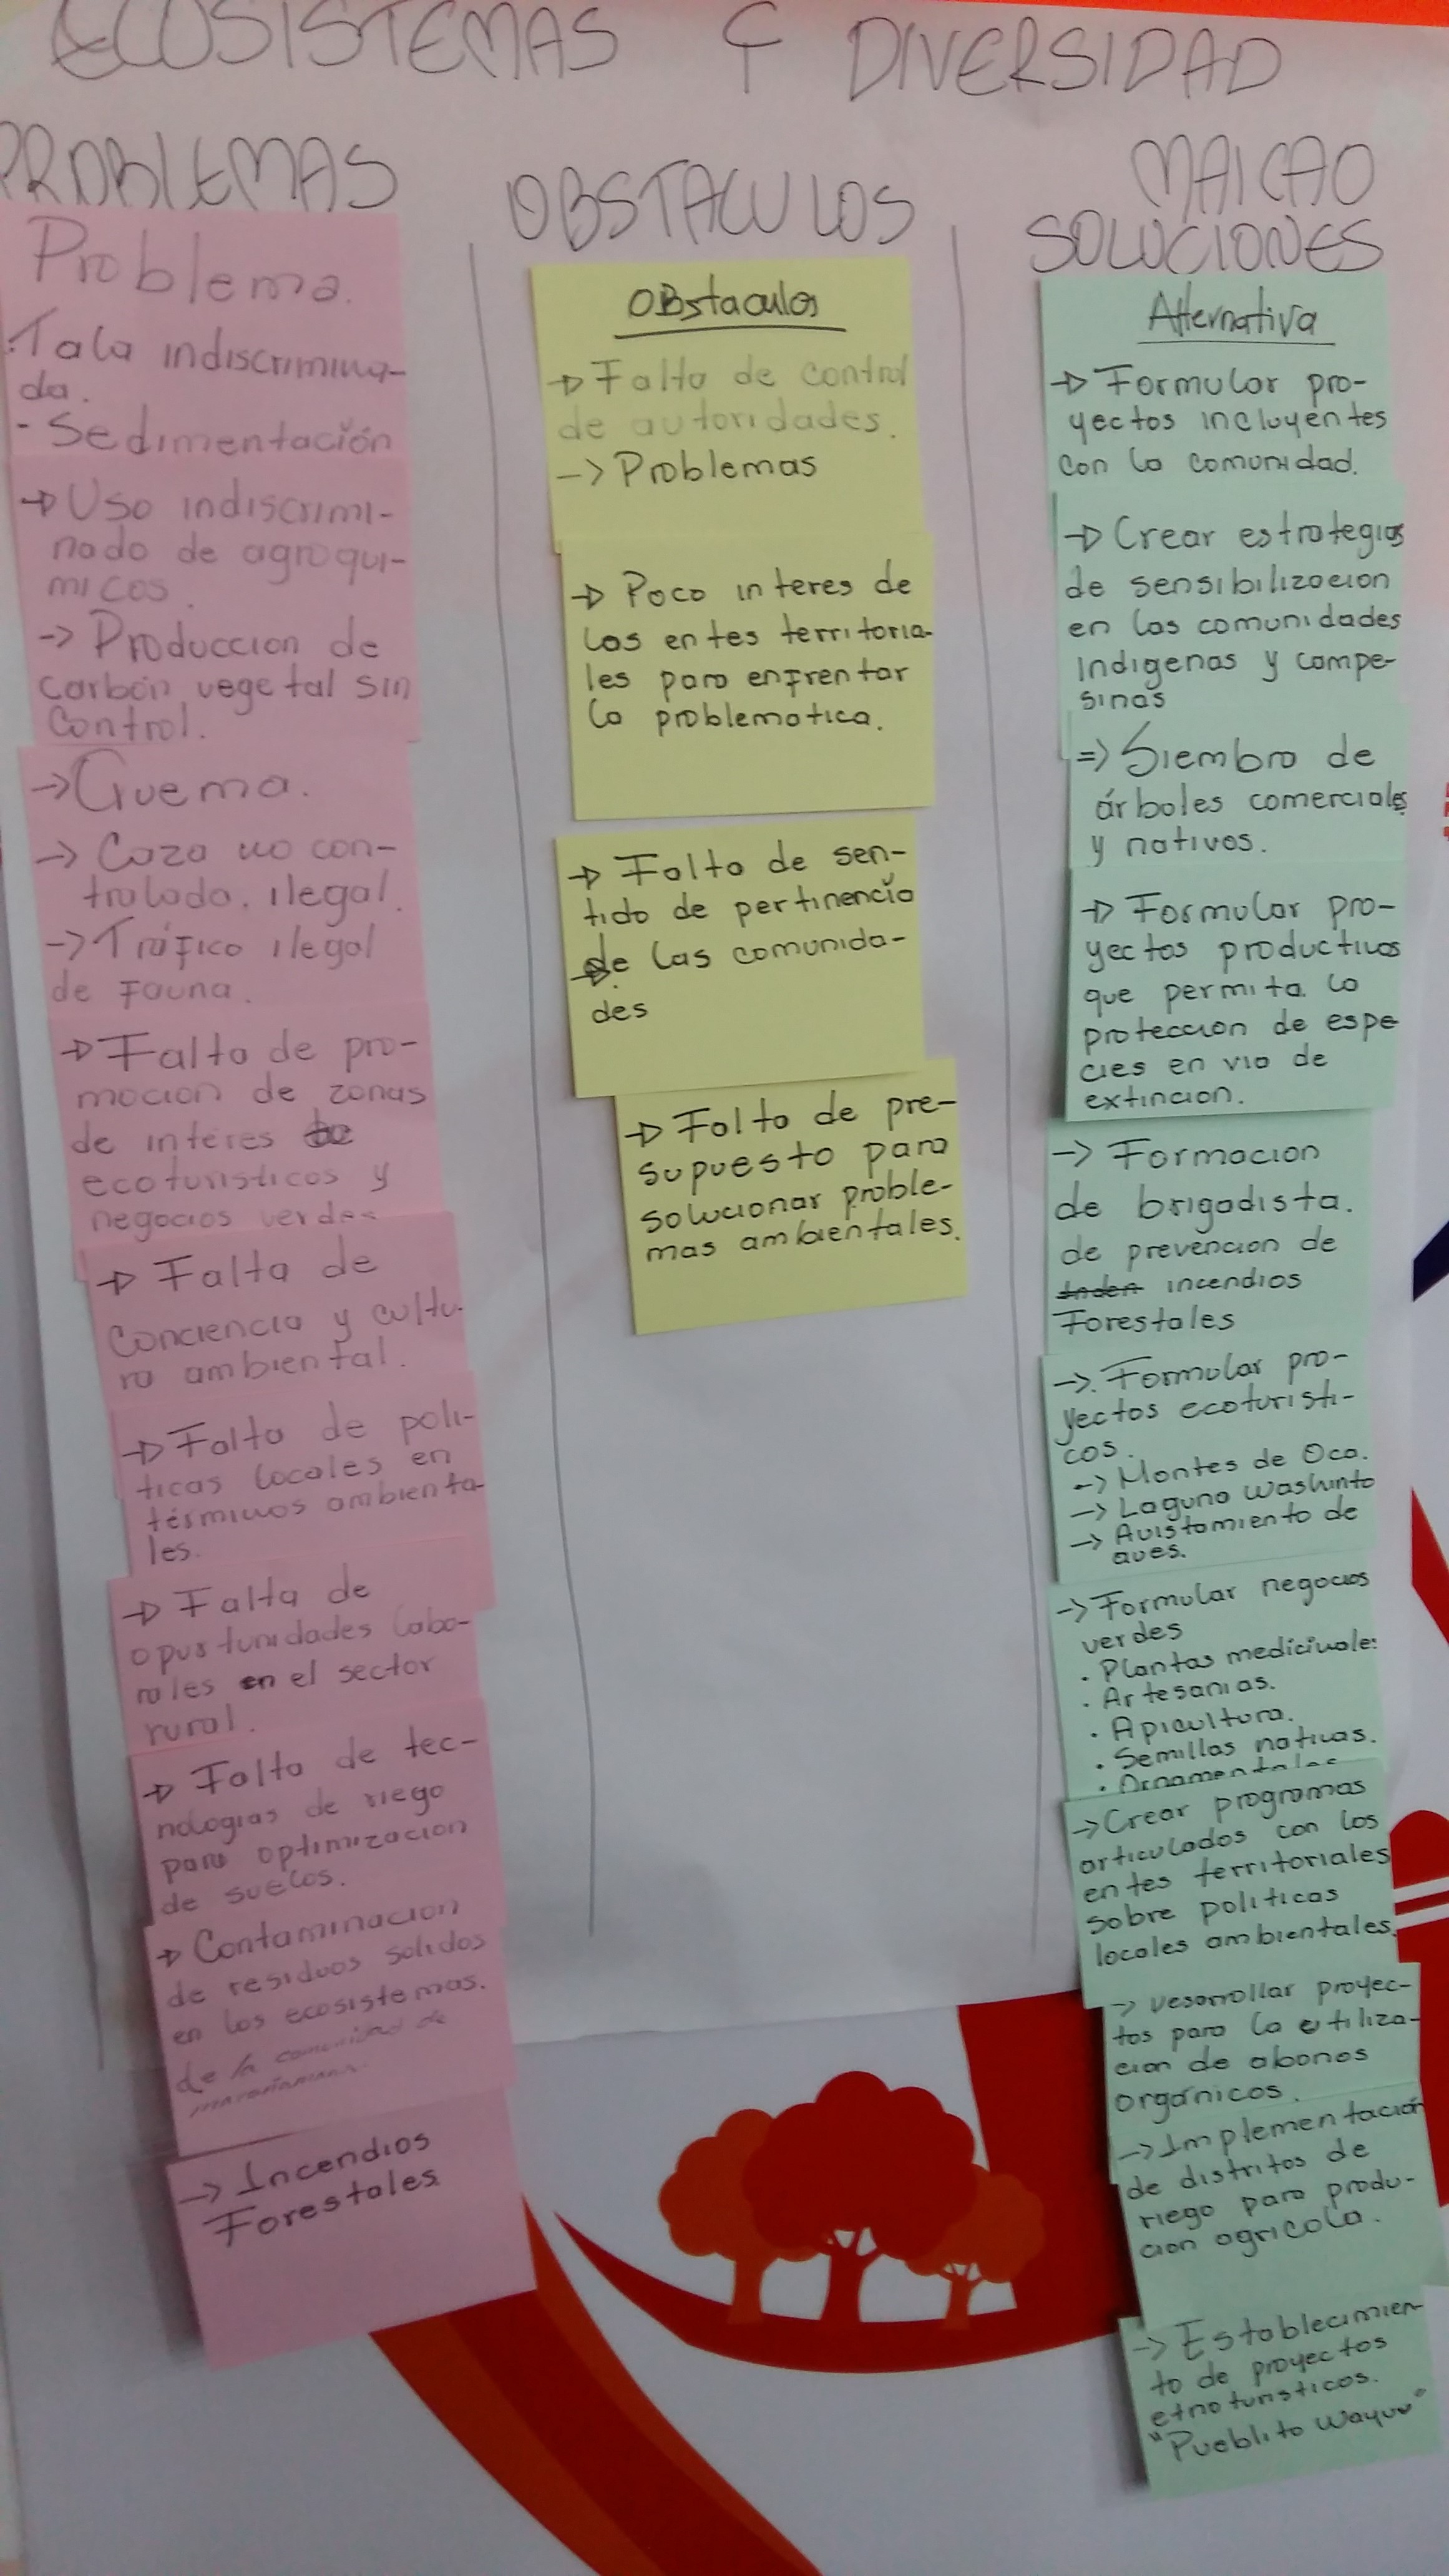 ECOSISTEMAS Y DIVERSIDAD
PROBLEMAS
Problema.
Tala indiscrimina-
da.
- Sedimentación
→ Uso indiscrimi-
nado de agroqui-
micos.
→ Produccion de
carbón vegetal sin
control.
→ Quema.
→ Caza no con-
trolada, ilegal.
→ Tráfico ilegal
de Fauna.
→ Falta de pro-
mocion de zonas
de interes
ecoturisticos y
negocios verdes
→ Falta de
conciencia y cultu-
ra ambiental.
→ Falta de poli-
ticas locales en
términos ambienta-
les.
→ Falta de
oportunidades labo-
rales en el sector
rural.
→ Falta de tec-
nologias de riego
para optimizacion
de suelos.
→ Contaminacion
de residuos solidos
en los ecosistemas.
de la comunidad de
→ Incendios
Forestales
OBSTACULOS
OBstaculos
→ Falta de control
de autoridades.
→ Problemas
→ Poco interes de
los entes territoria-
les para enfrentar
la problematica.
→ Falta de sen-
tido de pertinencia
de las comunida-
des
→ Falta de pre-
supuesto para
solucionar proble-
mas ambientales.
MAICAO
SOLUCIONES
Alternativa
→ Formular pro-
yectos incluyentes
con la comunidad.
→ Crear estrategias
de sensibilizacion
en las comunidades
Indigenas y campe-
sinas
⇒ Siembra de
árboles comerciales
y nativos.
→ Formular pro-
yectos productivos
que permita la
proteccion de espe
cies en via de
extincion.
→ Formacion
de brigadista.
de prevencion de
incendios
Forestales
→. Formular pro-
yectos ecoturisti-
cos.
→ Montes de Oca.
→ Laguna Washinto
→ Avistamiento de
aves.
→ Formular negocios
verdes
. Plantas medicinales
. Artesanias.
. Apicultura.
. Semillas nativas.
. Ornamentales
→ Crear programas
articulados con los
entes territoriales
sobre politicas
locales ambientales.
→ Desarrollar proyec-
tos para la utiliza-
cion de abonos
orgánicos.
→ Implementación
de distritos de
riego para produ-
cion agricola.
→ Establecimien
to de proyectos
etnoturisticos.
"Pueblito Wayuu"